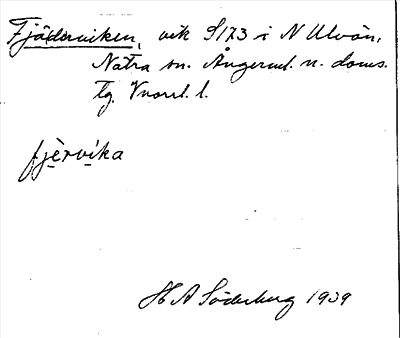 Fjäderviken, vik S 173 i N Ulvön,
Nätra sn. Ångerml. n. doms.
tg. Vnorrl. l.
fjèrvika
H A Söderberg 1939